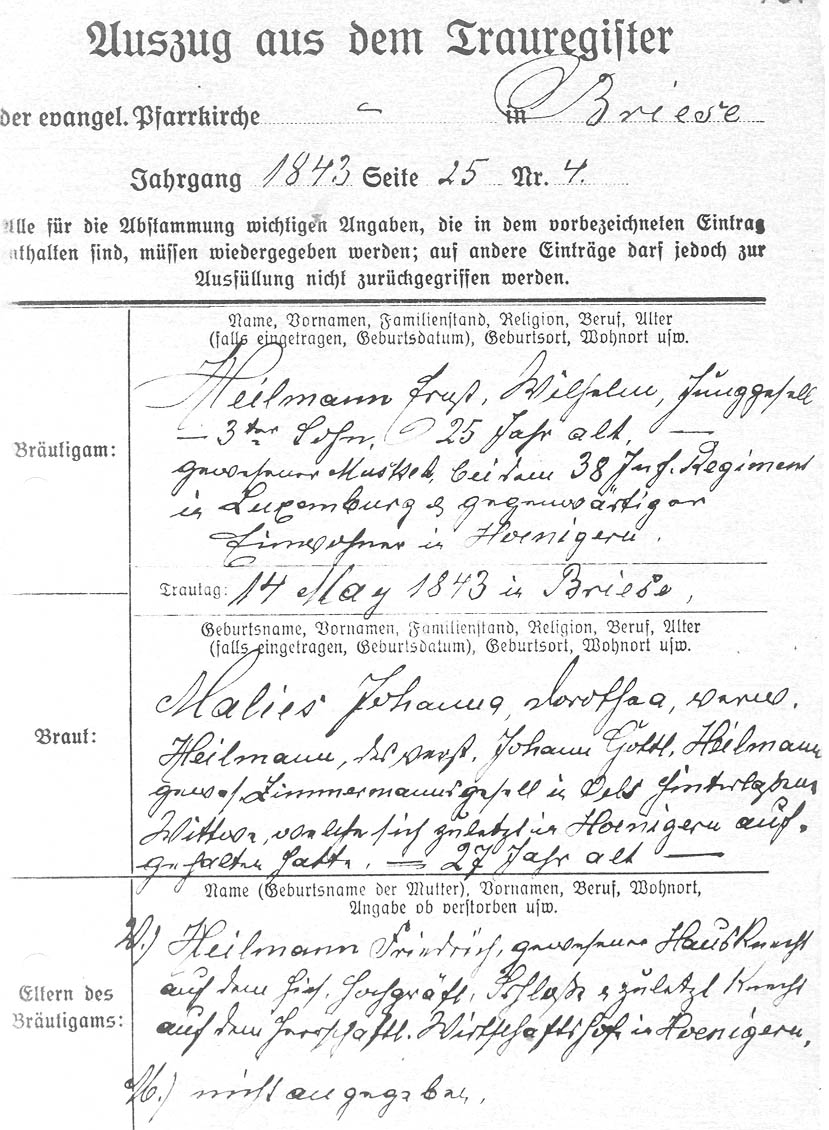 Auszug aus dem Trauregister
der evangel. Pfarrkirche - in Briese
Jahrgang 1843 Seite 25 Nr. 4.
Alle für die Abstammung wichtigen Angaben, die in dem vorbezeichneten Eintrag
enthalten sind, müssen wiedergegeben werden; auf andere Einträge darf jedoch zur
Ausfüllung nicht zurückgegriffen werden.
Name, Vornamen, Familienstand, Religion, Beruf, Alter
(falls eingetragen, Geburtsdatum), Geburtsort, Wohnort usw.
Bräutigam:
Heilmann Ernst, Wilhelm, Junggesell
— 3ter Sohn, 25 Jahr alt, —
gewesener Musket. bei dem 38 Inf. Regiment
in Luxemburg & gegenwärtiger
Einwohner in Hoenigern.
Trautag: 14 May 1843 in Briese,
Geburtsname, Vornamen, Familienstand, Religion, Beruf, Alter
(falls eingetragen, Geburtsdatum), Geburtsort, Wohnort usw.
Braut:
Malies Johanna, Dorothea, verw.
Heilmann, des verst. Johann Gottl. Heilmann
gewes. Zimmermannsgesell in Oels hinterlaßene
Wittwe, welche sich zuletzt in Hoenigern auf-
gehalten hatte. — 27 Jahr alt —
Name (Geburtsname der Mutter), Vornamen, Beruf, Wohnort,
Angabe ob verstorben usw.
Eltern des
Bräutigams:
V.) Heilmann Friedrich, gewesener Hausknecht
auf dem hies. hochgräfl. Schloße & zuletzt Knecht
auf dem herrschaftl. Wirtschaftshofe in Hoenigern.
M.) nicht angegeben.